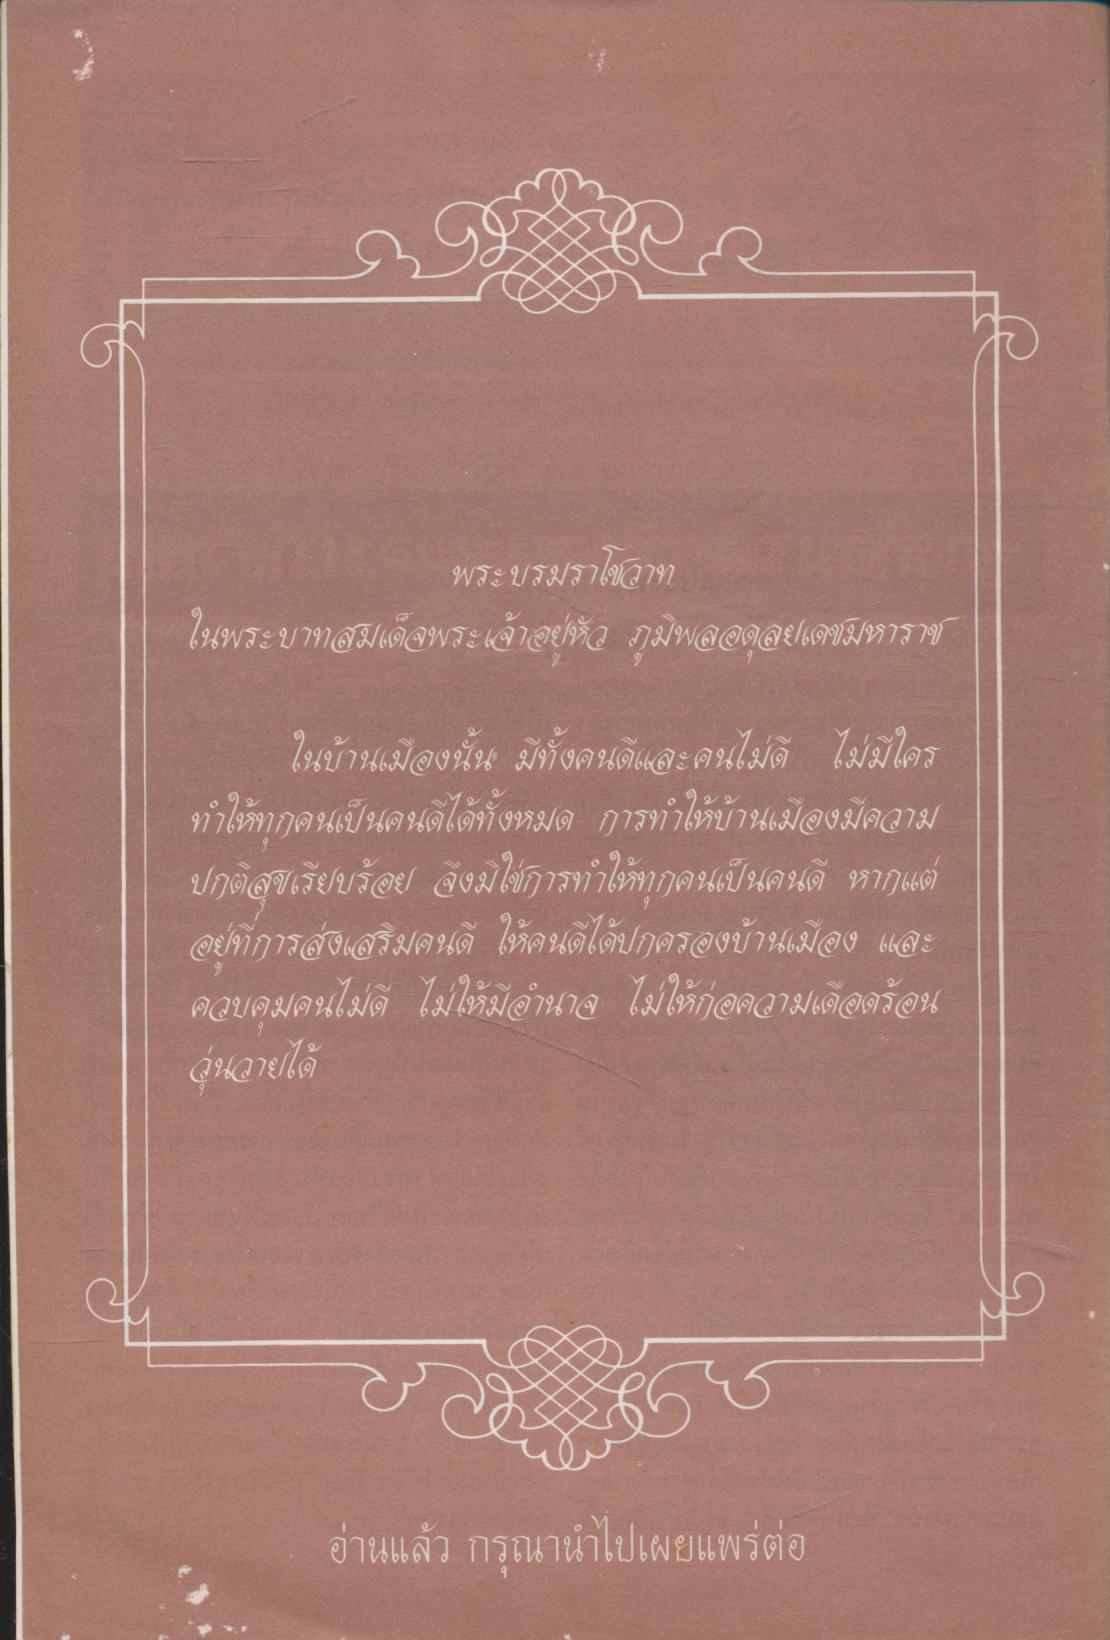 พระบรมราโชวาท
ในพระบาทสมเด็จพระเจ้าอยู่หัว ภูมิพลอดุลยเดชมหาราช
ในบ้านเมืองนั้น มีทั้งคนดีและคนไม่ดี ไม่มีใคร
ทำให้ทุกคนเป็นคนดีได้ทั้งหมด การทำให้บ้านเมืองมีความ
ปกติสุขเรียบร้อย จึงมิใช่การทำให้ทุกคนเป็นคนดี หากแต่
อยู่ที่การส่งเสริมคนดี ให้คนดีได้ปกครองบ้านเมือง และ
ควบคุมคนไม่ดี ไม่ให้มีอำนาจ ไม่ให้ก่อความเดือดร้อน
วุ่นวายได้
อ่านแล้ว กรุณานำไปเผยแพร่ต่อ